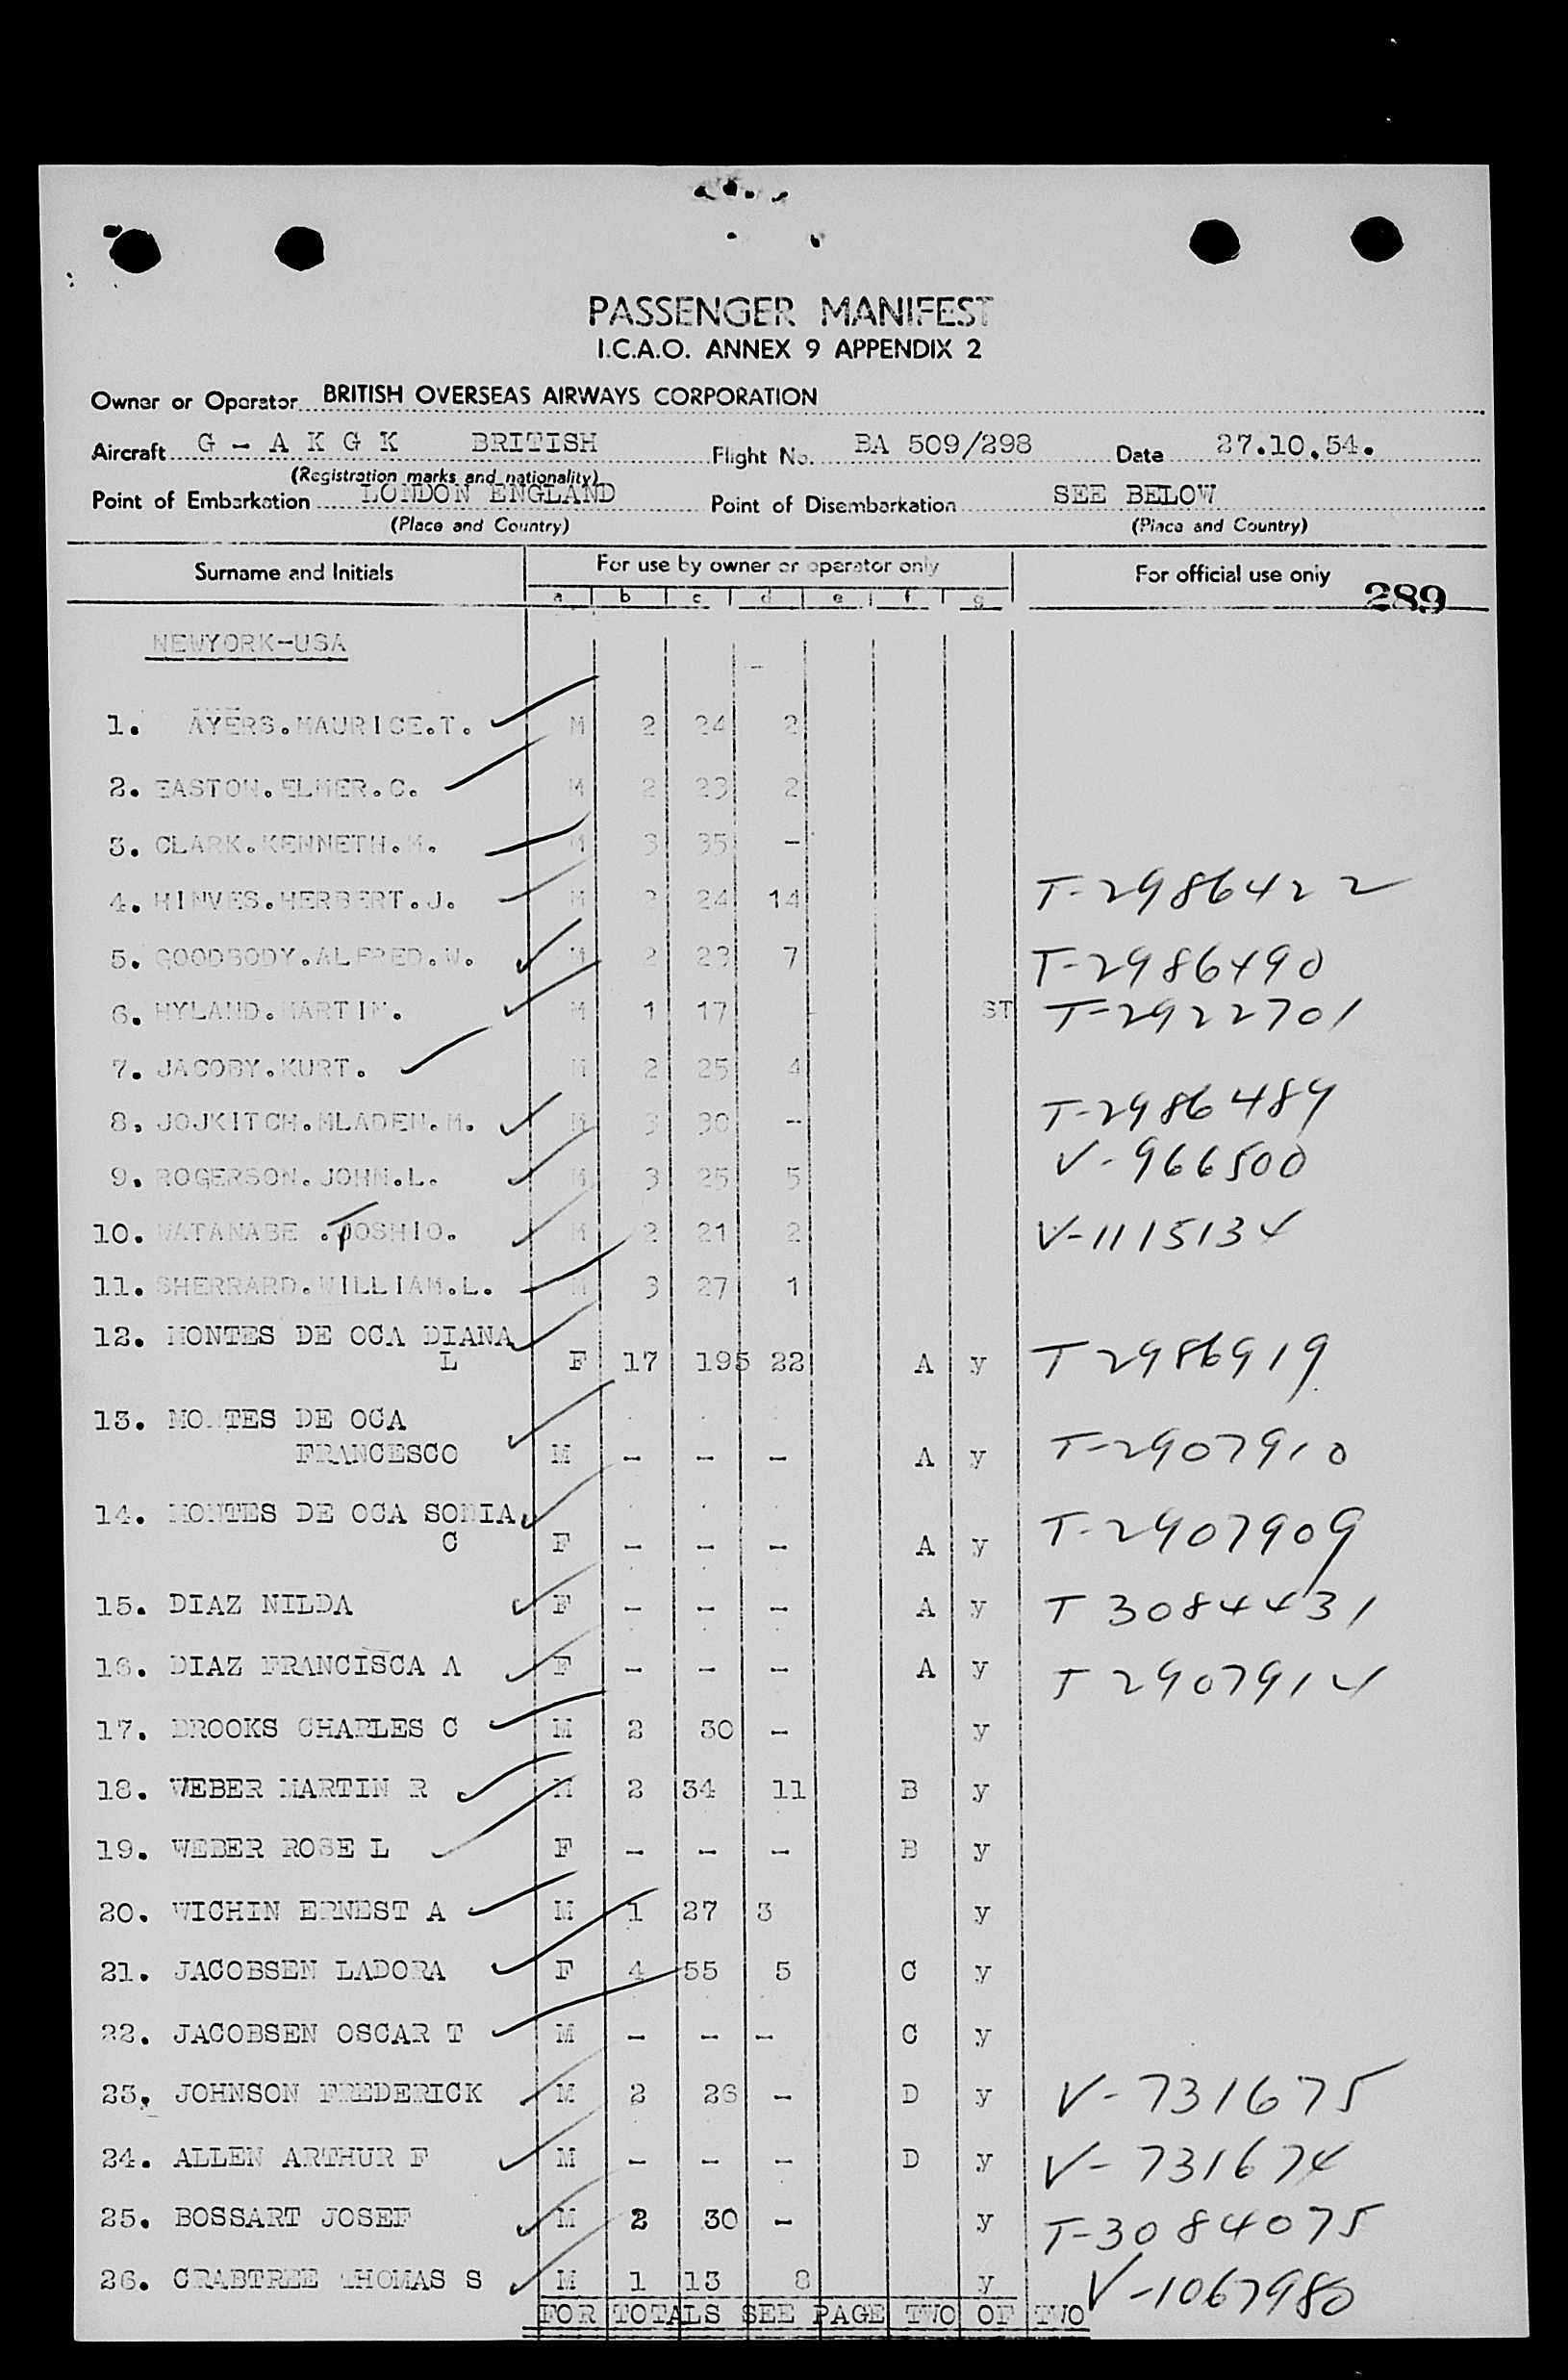 PASSENGER MANIFEST
I.C.A.O. ANNEX 9 APPENDIX 2
Owner or Operator BRITISH OVERSEAS AIRWAYS CORPORATION
Aircraft G - A K G K BRITISH Flight No. BA 509/298 Date 27.10.54.
(Registration marks and nationality)
Point of Embarkation LONDON ENGLAND Point of Disembarkation SEE BELOW
(Place and Country) (Place and Country)
Surname and Initials For use by owner or operator only For official use only 289
a b c d e f g
NEWYORK-USA
1. AYERS.MAURICE.T. M 2 24 2
2. EASTON.ELMER.C. M 2 23 2
3. CLARK.KENNETH.M. M 3 35 -
4. HINVES.HERBERT.J. M 2 24 14 T-2986422
5. GOODBODY.ALFRED.W. M 2 23 7 T-2986490
6. HYLAND.MARTIN. M 1 17 ST T-2922701
7. JACOBY.KURT. M 2 25 4
8. JOJKITCH.MLADEN.M. M 3 30 - T-2986489
9. ROGERSON.JOHN.L. M 3 25 5 V-966500
10. WATANABE .TOSHIO. M 2 21 2 V-1115134
11. SHERRARD.WILLIAM.L. M 3 27 1
12. MONTES DE OCA DIANA
L F 17 195 22 A y T 2986919
13. MONTES DE OCA
FRANCESCO M - - - A y T-2907910
14. MONTES DE OCA SONIA
C F - - - A y T-2907909
15. DIAZ NILDA F - - - A y T 3084431
16. DIAZ FRANCISCA A F - - - A y T 2907914
17. BROOKS CHARLES C M 2 30 - y
18. WEBER MARTIN R M 2 34 11 B y
19. WEBER ROSE L F - - - B y
20. WICHIN ERNEST A M 1 27 3 y
21. JACOBSEN LADORA F 4 55 5 C y
22. JACOBSEN OSCAR T M - - - C y
23. JOHNSON FREDERICK M 2 26 - D y V-731675
24. ALLEN ARTHUR F M - - - D y V-731674
25. BOSSART JOSEF M 2 30 - y T-3084075
26. CRABTREE THOMAS S M 1 13 8 y V-1067980
FOR TOTALS SEE PAGE TWO OF TWO